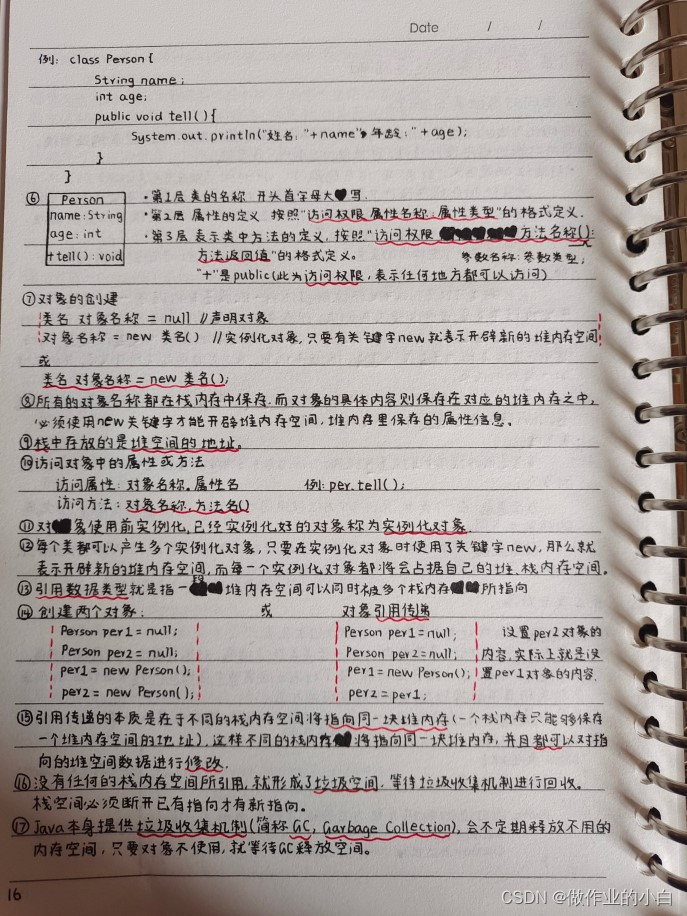 Date / /
例: class Person {
String name;
int age;
public void tell() {
System.out.println("姓名:"+name", 年龄:"+age);
}
}
⑥ Person ·第1层 类的名称 开头首字母大写.
name:String ·第2层 属性的定义 按照"访问权限 属性名称:属性类型"的格式定义.
age:int ·第3层 表示类中方法的定义,按照"访问权限 方法名称():
+tell():void 方法返回值"的格式定义。 参数名称:参数类型,
"+"是public(此为访问权限,表示任何地方都可以访问)
⑦对象的创建
类名 对象名称 = null //声明对象
对象名称 = new 类名() //实例化对象,只要有关键字new就表示开辟新的堆内存空间
或
类名 对象名称 = new 类名();
⑧所有的对象名称都在栈内存中保存.而对象的具体内容则保存在对应的堆内存之中,
必须使用new关键字才能开辟堆内存空间,堆内存里保存的属性信息。
⑨栈中存放的是堆空间的地址。
⑩访问对象中的属性或方法
访问属性:对象名称.属性名 例:per.tell();
访问方法:对象名称.方法名()
⑪对象使用前实例化,已经实例化好的对象称为实例化对象.
⑫每个类都可以产生多个实例化对象,只要在实例化对象时使用了关键字new,那么就
表示开辟新的堆内存空间,而每一个实例化对象都将会占据自己的堆、栈内存空间。
⑬引用数据类型就是指一段堆内存空间可以同时被多个栈内存所指向
⑭创建两个对象: 或 对象引用传递
Person per1=null; Person per1=null; 设置per2对象的
Person per2=null; Person per2=null; 内容,实际上就是设
per1=new Person(); per1=new Person(); 置per1对象的内容.
per2=new Person(); per2=per1;
⑮引用传递的本质是在于不同的栈内存空间将指向同一块堆内存(一个栈内存只能够保存
一个堆内存空间的地址),这样不同的栈内存将指向同一块堆内存,并且都可以对指
向的堆空间数据进行修改.
⑯没有任何的栈内存空间所引用,就形成了垃圾空间,等待垃圾收集机制进行回收。
栈空间必须断开已有指向才有新指向。
⑰Java本身提供垃圾收集机制(简称GC, Garbage Collection),会不定期释放不用的
内存空间,只要对象不使用,就等待GC释放空间。
16
CSDN @做作业的小白